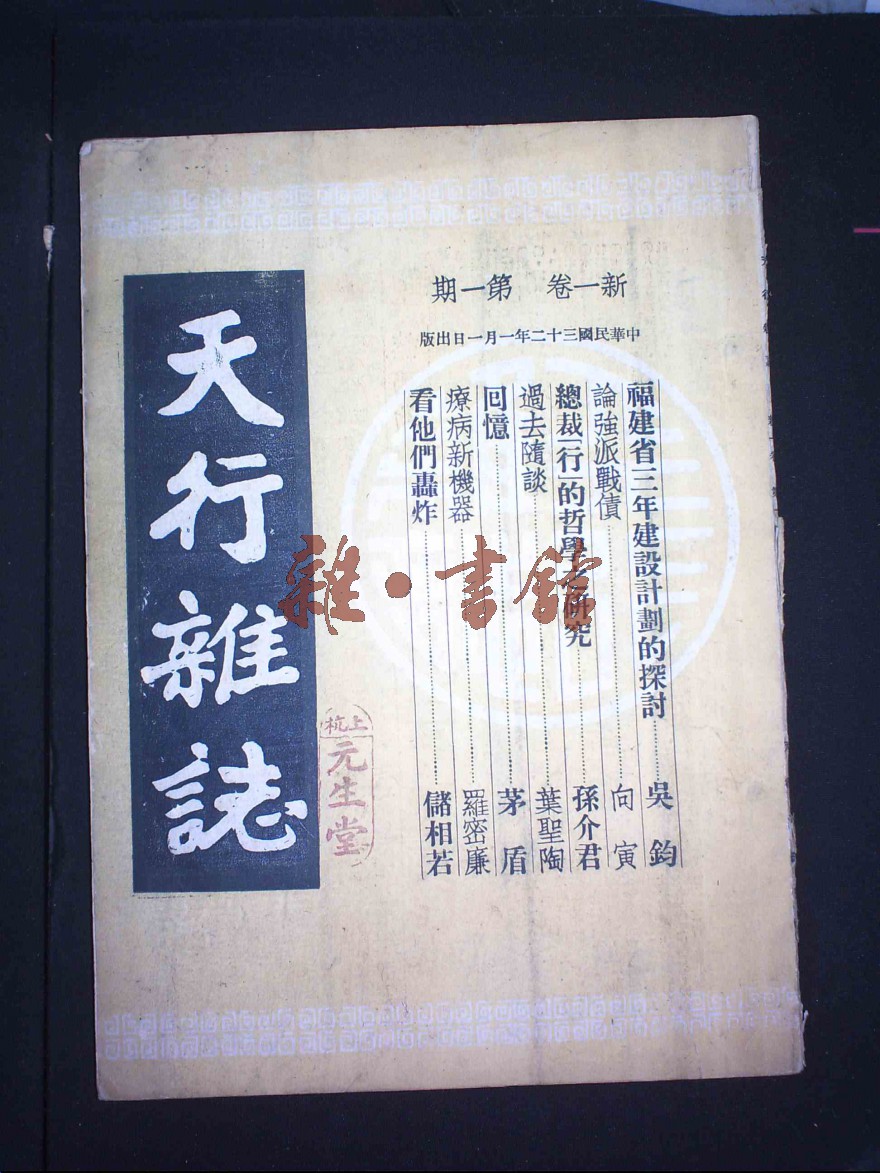 新一卷 第一期
中華民國三十二年一月一日出版
福建省三年建設計劃的探討⋯⋯吳鈞
論強派戰債⋯⋯向寅
總裁「行」的哲學之研究⋯⋯孫介君
過去隨談⋯⋯葉聖陶
回憶⋯⋯茅盾
療病新機器⋯⋯羅密廉
看他們轟炸⋯⋯儲相若
天行雜誌
上杭
元生堂
雜·書館